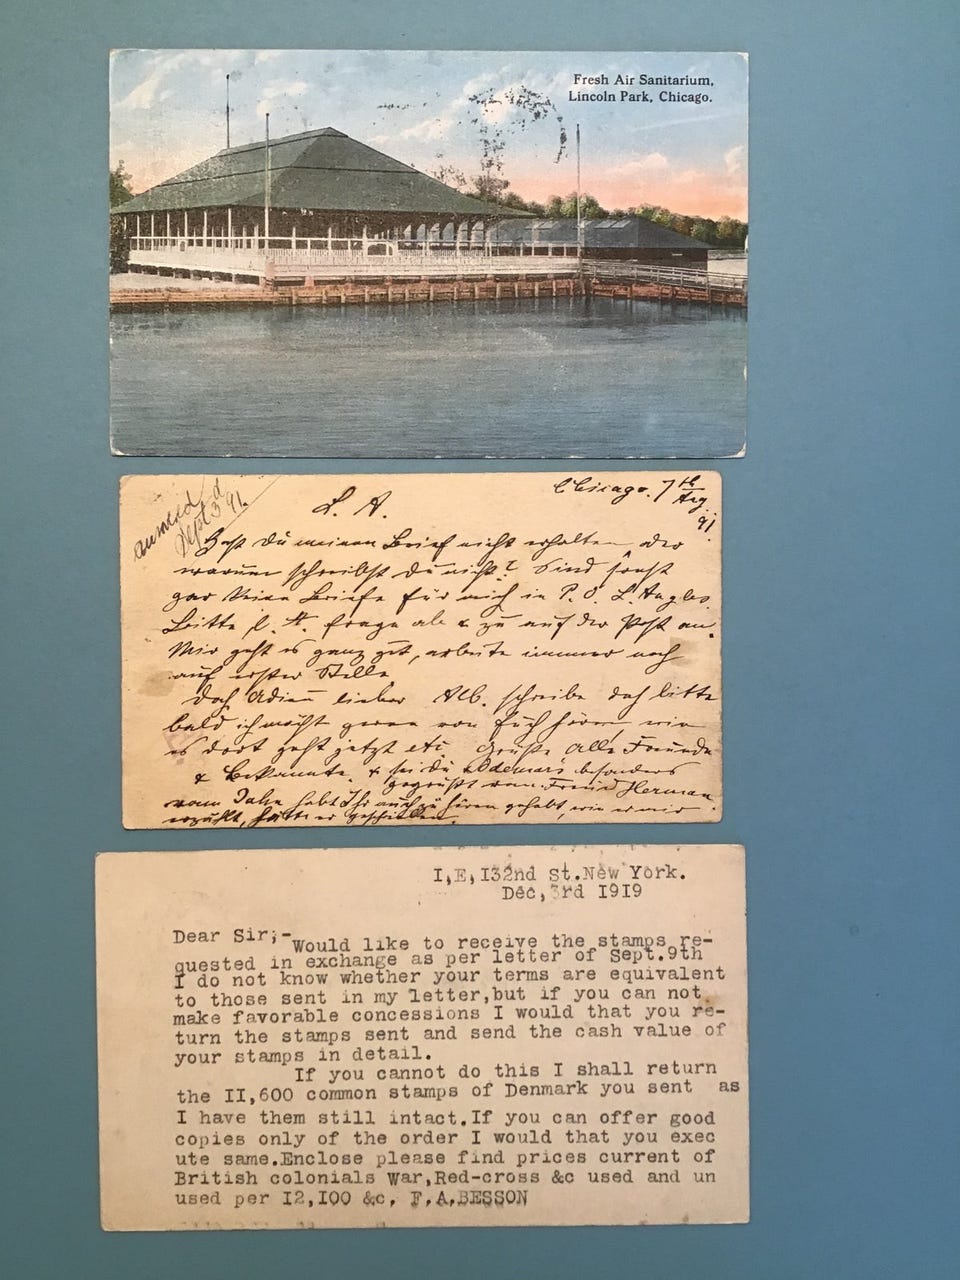 Fresh Air Sanitarium,
Lincoln Park, Chicago.
Chicago. 7th
Aug
91
Sept 3d 91.
L. A.
Hast Du meinen Brief nicht erhalten oder
warum schreibst Du nicht? Sind sonst
gar keine Briefe für mich in P. O. L. Angles.
Bitte, l. A. frage ab & zu auf der Post an.
Mir geht es ganz gut, arbeite immer noch
auf erster Stelle.
Doch Adieu lieber Alb. schreibe doch bitte
bald ich möcht gerne von Euch hören wie
es dort geht jetzt etc. Grüße alle Freunde
& Bekannte. & sei Du besonders
gegrüßt vom Freund Herman
vom Jahn habt Ihr auch zu hören gehabt, wie er mir
erzählt, hätte er geschrieben.
I,E,I32nd St.New York.
Dec,3rd I9I9
Dear Sir;-
Would like to receive the stamps re-
quested in exchange as per letter of Sept.9th
I do not know whether your terms are equivalent
to those sent in my letter,but if you can not
make favorable concessions I would that you re-
turn the stamps sent and send the cash value of
your stamps in detail.
If you cannot do this I shall return
the II,600 common stamps of Denmark you sent as
I have them still intact.If you can offer good
copies only of the order I would that you exec
ute same.Enclose please find prices current of
British colonials War,Red-cross &c used and un
used per I2,I00 &c, F.A.BESSON